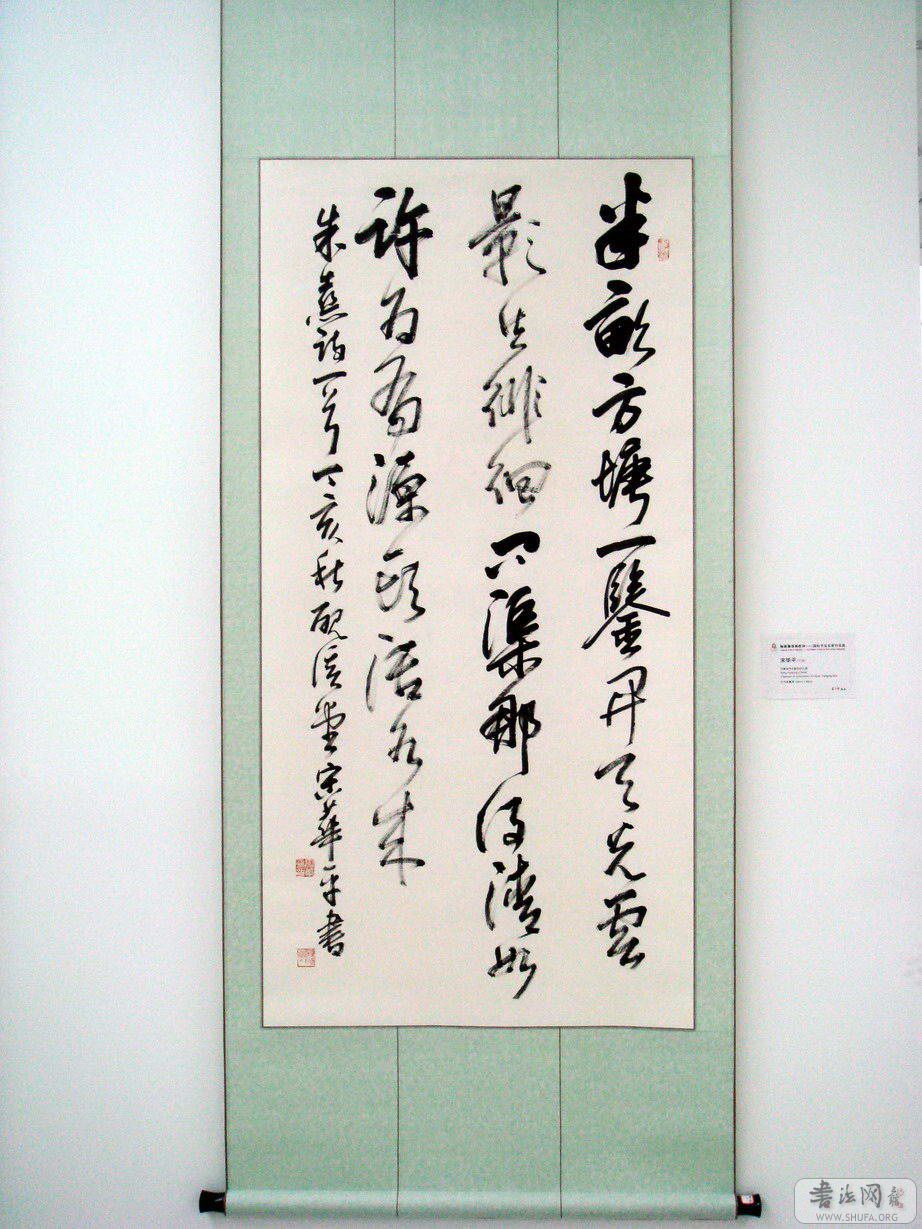 半畝方塘一鑒開天光雲
影共徘徊問渠那得清如
許為有源頭活水来
朱熹詩一首丁亥秋堂宋華平書
宋华平
書法网
WWW.SHUFA.ORG